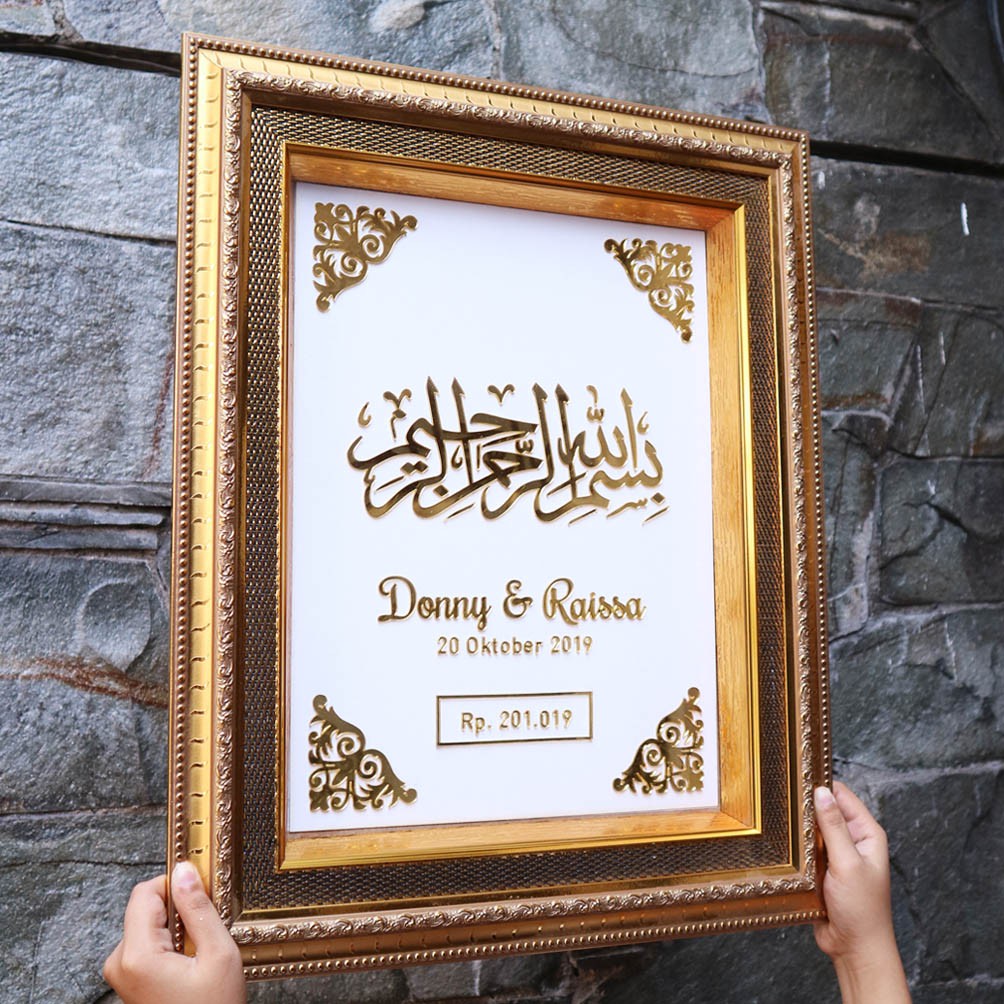 بسم الله الرحمن الرحيم
Donny & Raissa
20 Oktober 2019
Rp. 201.019